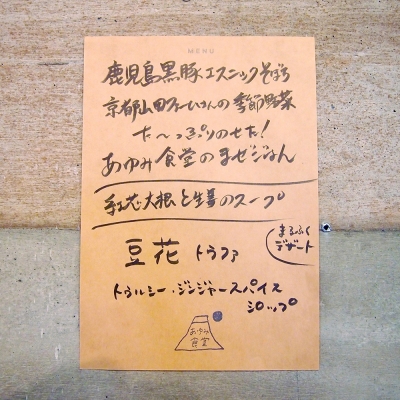 MENU
鹿児島黒豚エスニックそぼろ
京都山田ファームさんの季節野菜
た〜っぷりのせた!
あゆみ食堂のまぜごはん
紅芯大根と生姜のスープ
豆花 トウファ
まるふく
デザート
トゥルシー・ジンジャースパイス
シロップ
あゆみ
食堂